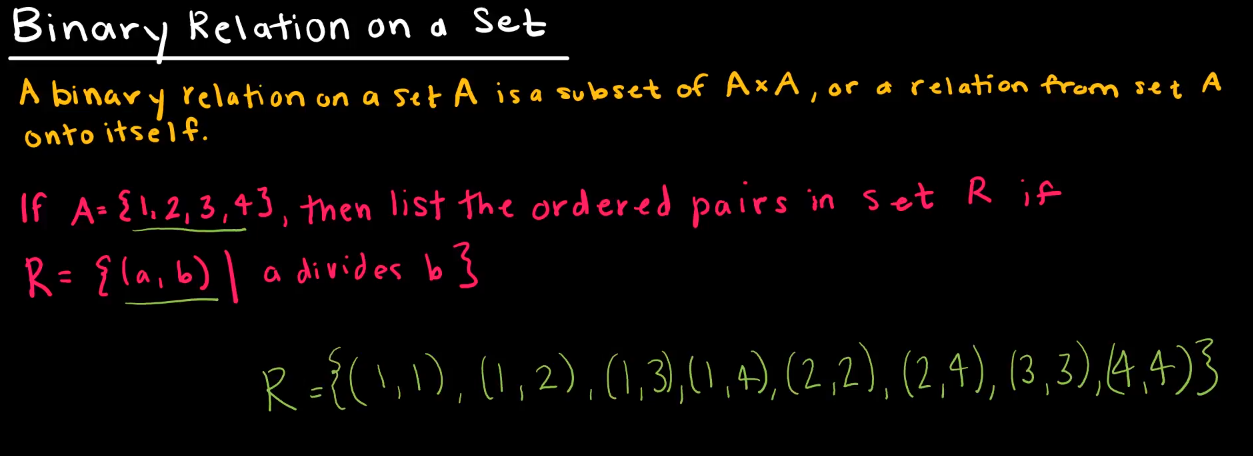 Binary Relation on a Set
A binary relation on a set A is a subset of A×A, or a relation from set A
onto itself.
If A={1,2,3,4}, then list the ordered pairs in set R if
R={(a,b)| a divides b}
R={(1,1),(1,2),(1,3),(1,4),(2,2),(2,4),(3,3),(4,4)}